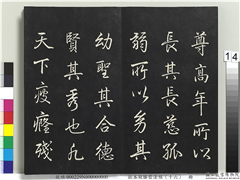 尊高年所以
長其長慈孤
弱所以幼其
幼聖其合德
賢其秀也凡
天下疲癃殘
14